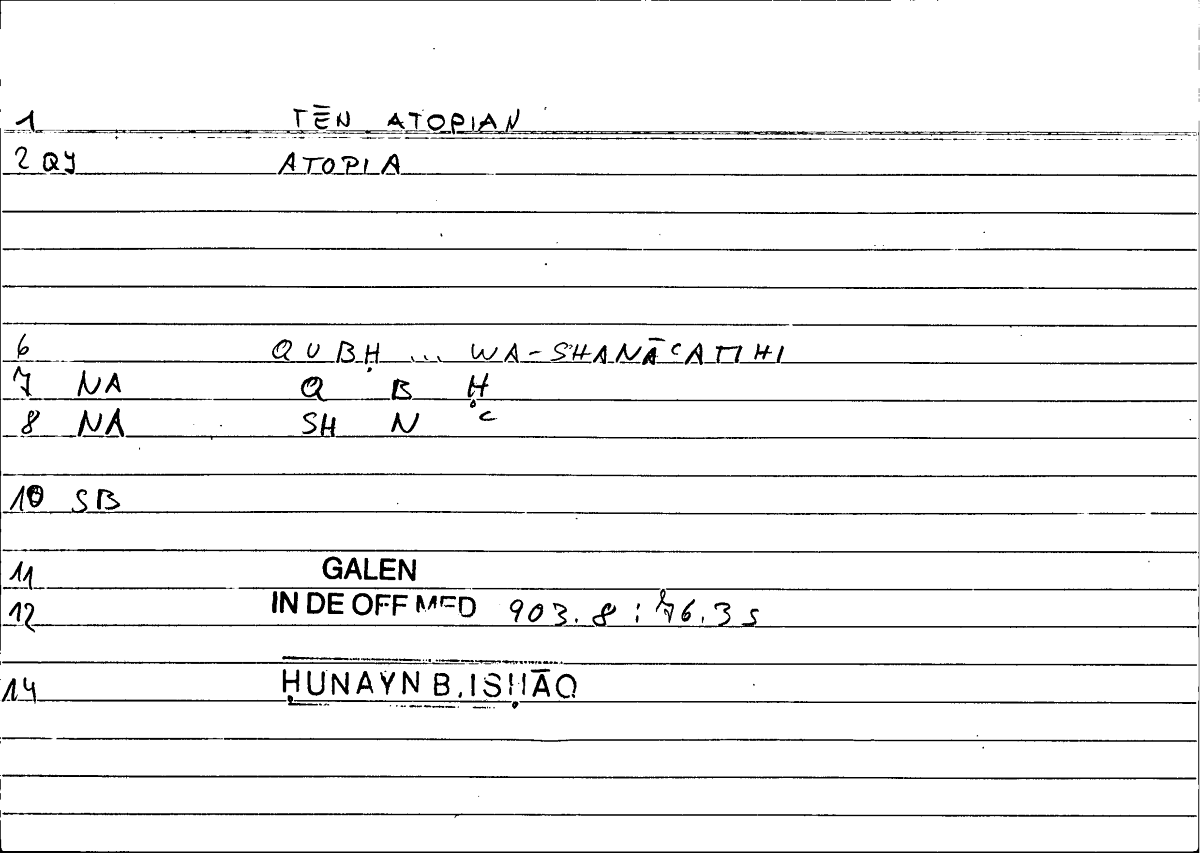 1 TĒN ATOPIAN
2 QY ATOPIA
6 QUBḤ ... WA-SHANĀCATIHI
7 NA Q B Ḥ
8 NA SH N C
10 SB
11 GALEN
12 IN DE OFF MED 903.8 : 76.3 s
14 ḤUNAYN B. ISḤĀQ